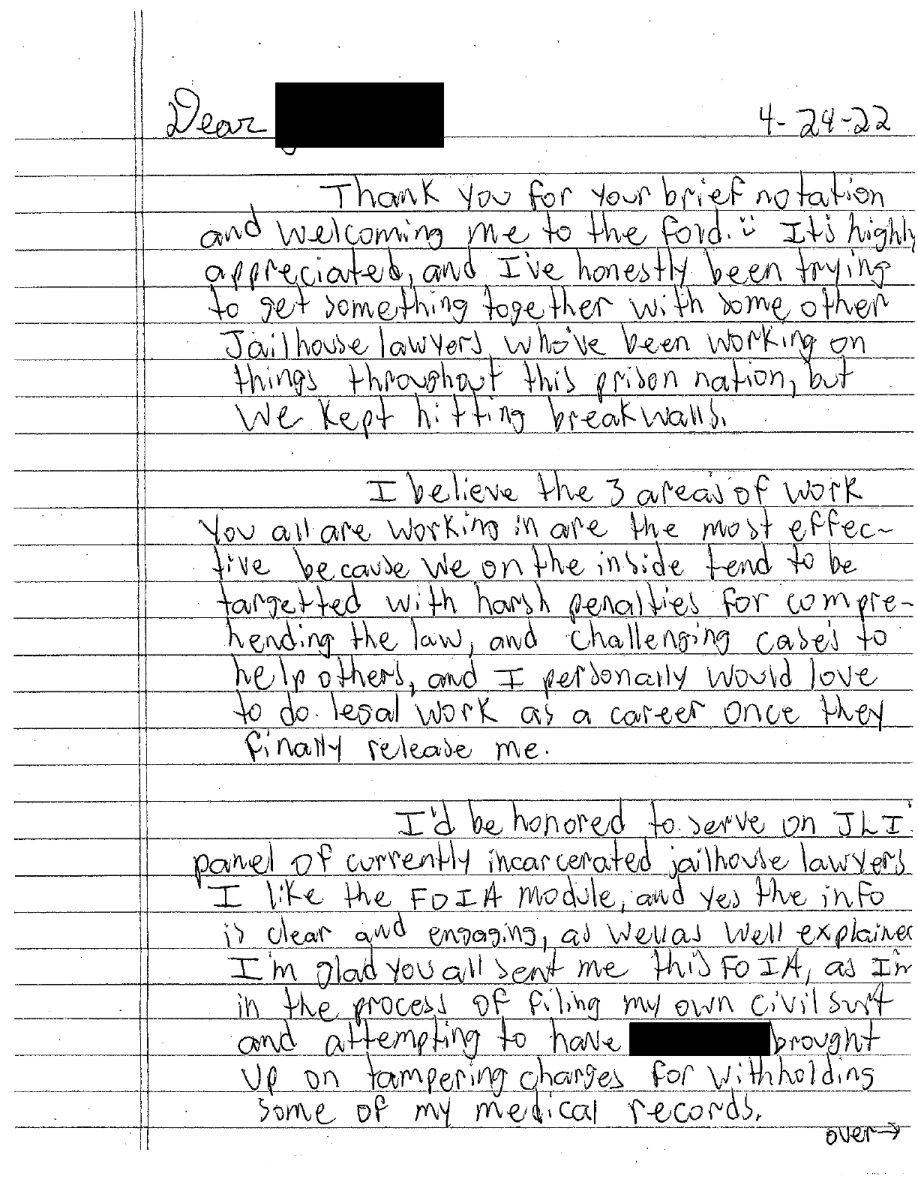 Dear
4-24-22
Thank you for your brief notation
and welcoming me to the fold. It's highly
appreciated, and I've honestly been trying
to get something together with some other
Jailhouse lawyers who've been working on
things throughout this prison nation, but
we kept hitting breakwalls.
I believe the 3 areas of work
you all are working in are the most effec-
tive because we on the inside tend to be
targetted with harsh penalties for compre-
hending the law, and challenging cases to
help others, and I personally would love
to do legal work as a career once they
finally release me.
I'd be honored to serve on JLI
panel of currently incarcerated jailhouse lawyers
I like the FOIA module, and yes the info
is clear and engaging, as well as well explained
I'm glad you all sent me this FOIA, as I'm
in the process of filing my own civil suit
and attempting to have brought
up on tampering charges for withholding
some of my medical records.
over→